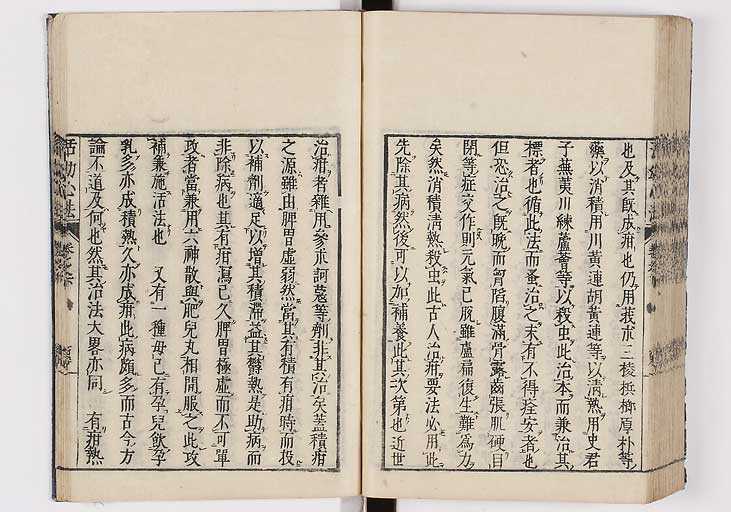 也及其既成疳也仍用莪朮三稜梹榔厚朴等
藥以消積用川黃連胡黃連等以淸熱用史君
子蕪荑川練蘆薈等以殺虫此治本而兼治其
標者也循此法而蚤治之未有不得痊安者也
但恐治之既晩而胷陷腹滿骨露齒張肌硬目
閉等症交作則元氣已脫雖盧扁復生難為力
矣然消積淸熱殺虫此古人治疳要法必用此
先除其病然後可以加補養此其次第也近世
治疳者雜用參朮訶蔻等劑非其治矣蓋積疳
之源雖由脾胃虛弱然當其有積有疳時而投
以補劑適足以增其積滯益其欝熱是助病而
非除病也其有疳瀉已久脾胃極虛而不可單
攻者當兼用六神散與肥兒丸相間服之此攻
補兼施活法也　又有一種母已有孕兒飲孕
乳多亦成積熱久亦成疳此病頗多而古今方
論不道及何也然其治法大畧亦同　有疳熱
活幼心法